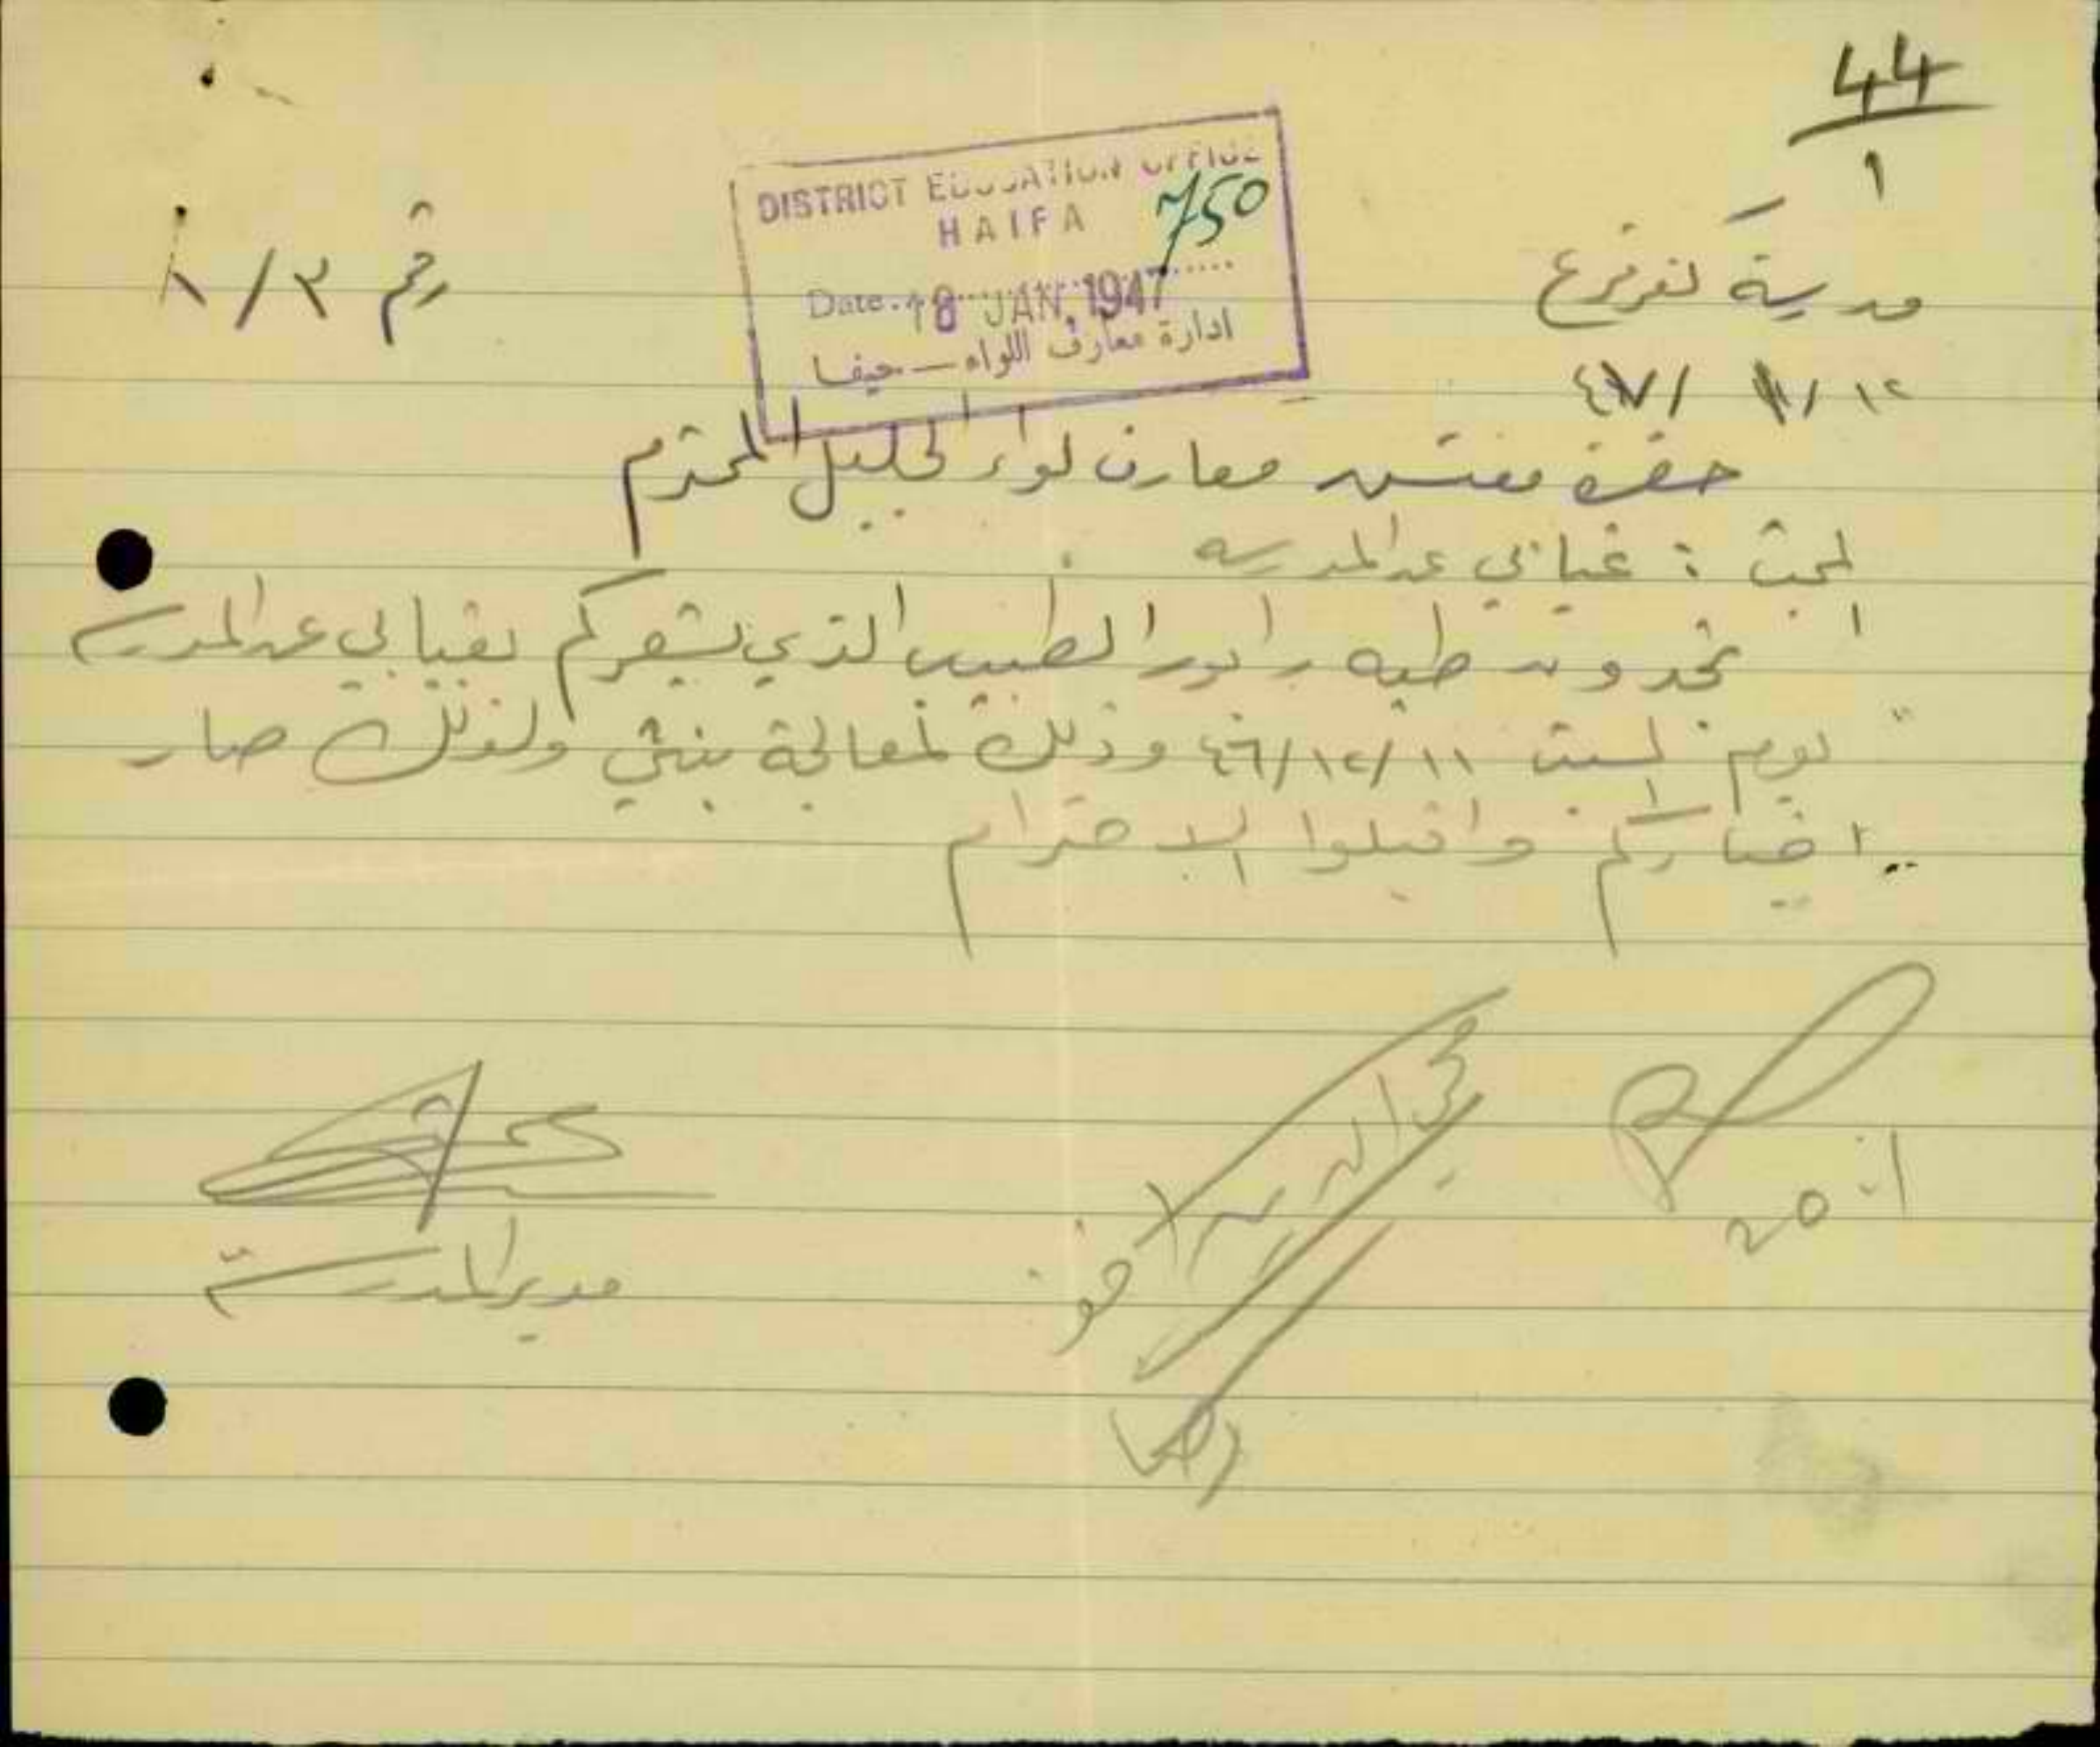 44
١
DISTRICT EDUCATION OFFICE
HAIFA 750
Date. 18 JAN. 1947
ادارة معارف اللواء — حيفا
مدرسة كفر قرع
رقم ٣/٨
١٢/ ١/ ٤٧
حضرة مفتش معارف لواء الجليل المحترم
البحث : غيابي عن المدرسه
تجدون طيه رابور الطبيب الذي يشعركم بغيابي عن المدرسه
يوم السبت ١١/١٢/٤٦ وذلك لمعالجة بنتي ولذلك صار
اخباركم واقبلوا الاحترام
مدير المدرسة